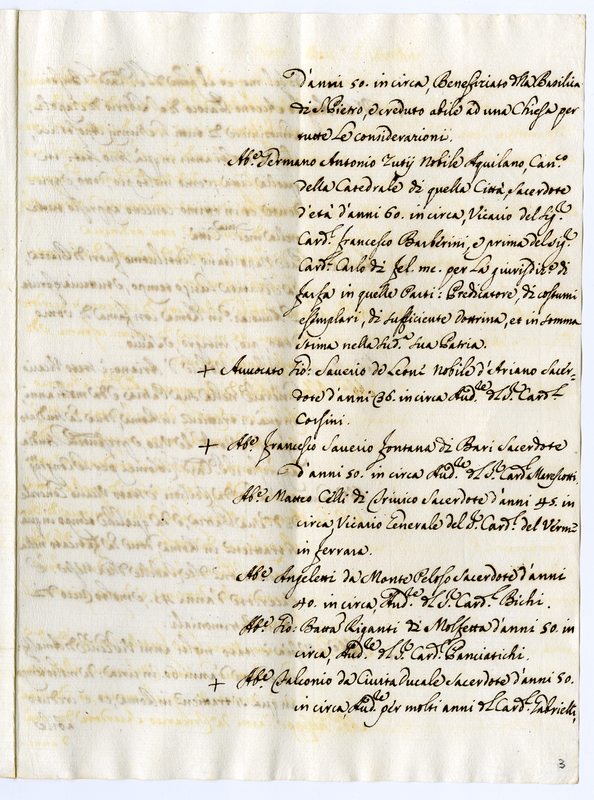 d'anni 50. in circa, Benefiziato della Basilica
di S. Pietro, e creduto abile ad una Chiesa per
tutte le considerazioni.
Abe. Germano Antonio Zutij Nobile Aquilano, Can.co
della Catedrale di quella Città, Sacerdote
d'età d'anni 60. in circa, Vicario del Sig.re
Card.l Francesco Barberini, e prima del Sig.r
Card.l Carlo di fel. me. per la giurisdiz.e di
Farfa in quelle Parti: Predicatore, di costumi
essemplari, di sufficiente dottrina, et in somma
stima nella sud.a sua Patria.
+ Avvocato Gio: Saverio de Leon.i Nobile d'Ariano Sacer-
dote d'anni 36. in circa Aud.re del S.r Card.l
Corsini.
+ Abe. Francesco Saverio Fontana di Bari Sacerdote
d'anni 50. in circa Aud.re del S.r Card.l Marescotti.
Abe. Matteo Celli di Trivico Sacerdote d'anni 45. in
circa, Vicario Generale del S.r Card.l del Verme
in Ferrara.
Abe. Angeletti da Monte Peloso Sacerdote d'anni
40. in circa, Aud.re del S.r Card.l Bichi.
Abe. Gio: Batta Riganti di Molfetta d'anni 50. in
circa, Aud.re del S.r Card.l Panciatichi.
+ Abe. Falconio da Civita Ducale Sacerdote d'anni 50.
in circa, Aud.re per molti anni del Card.l Gabrielli,
3